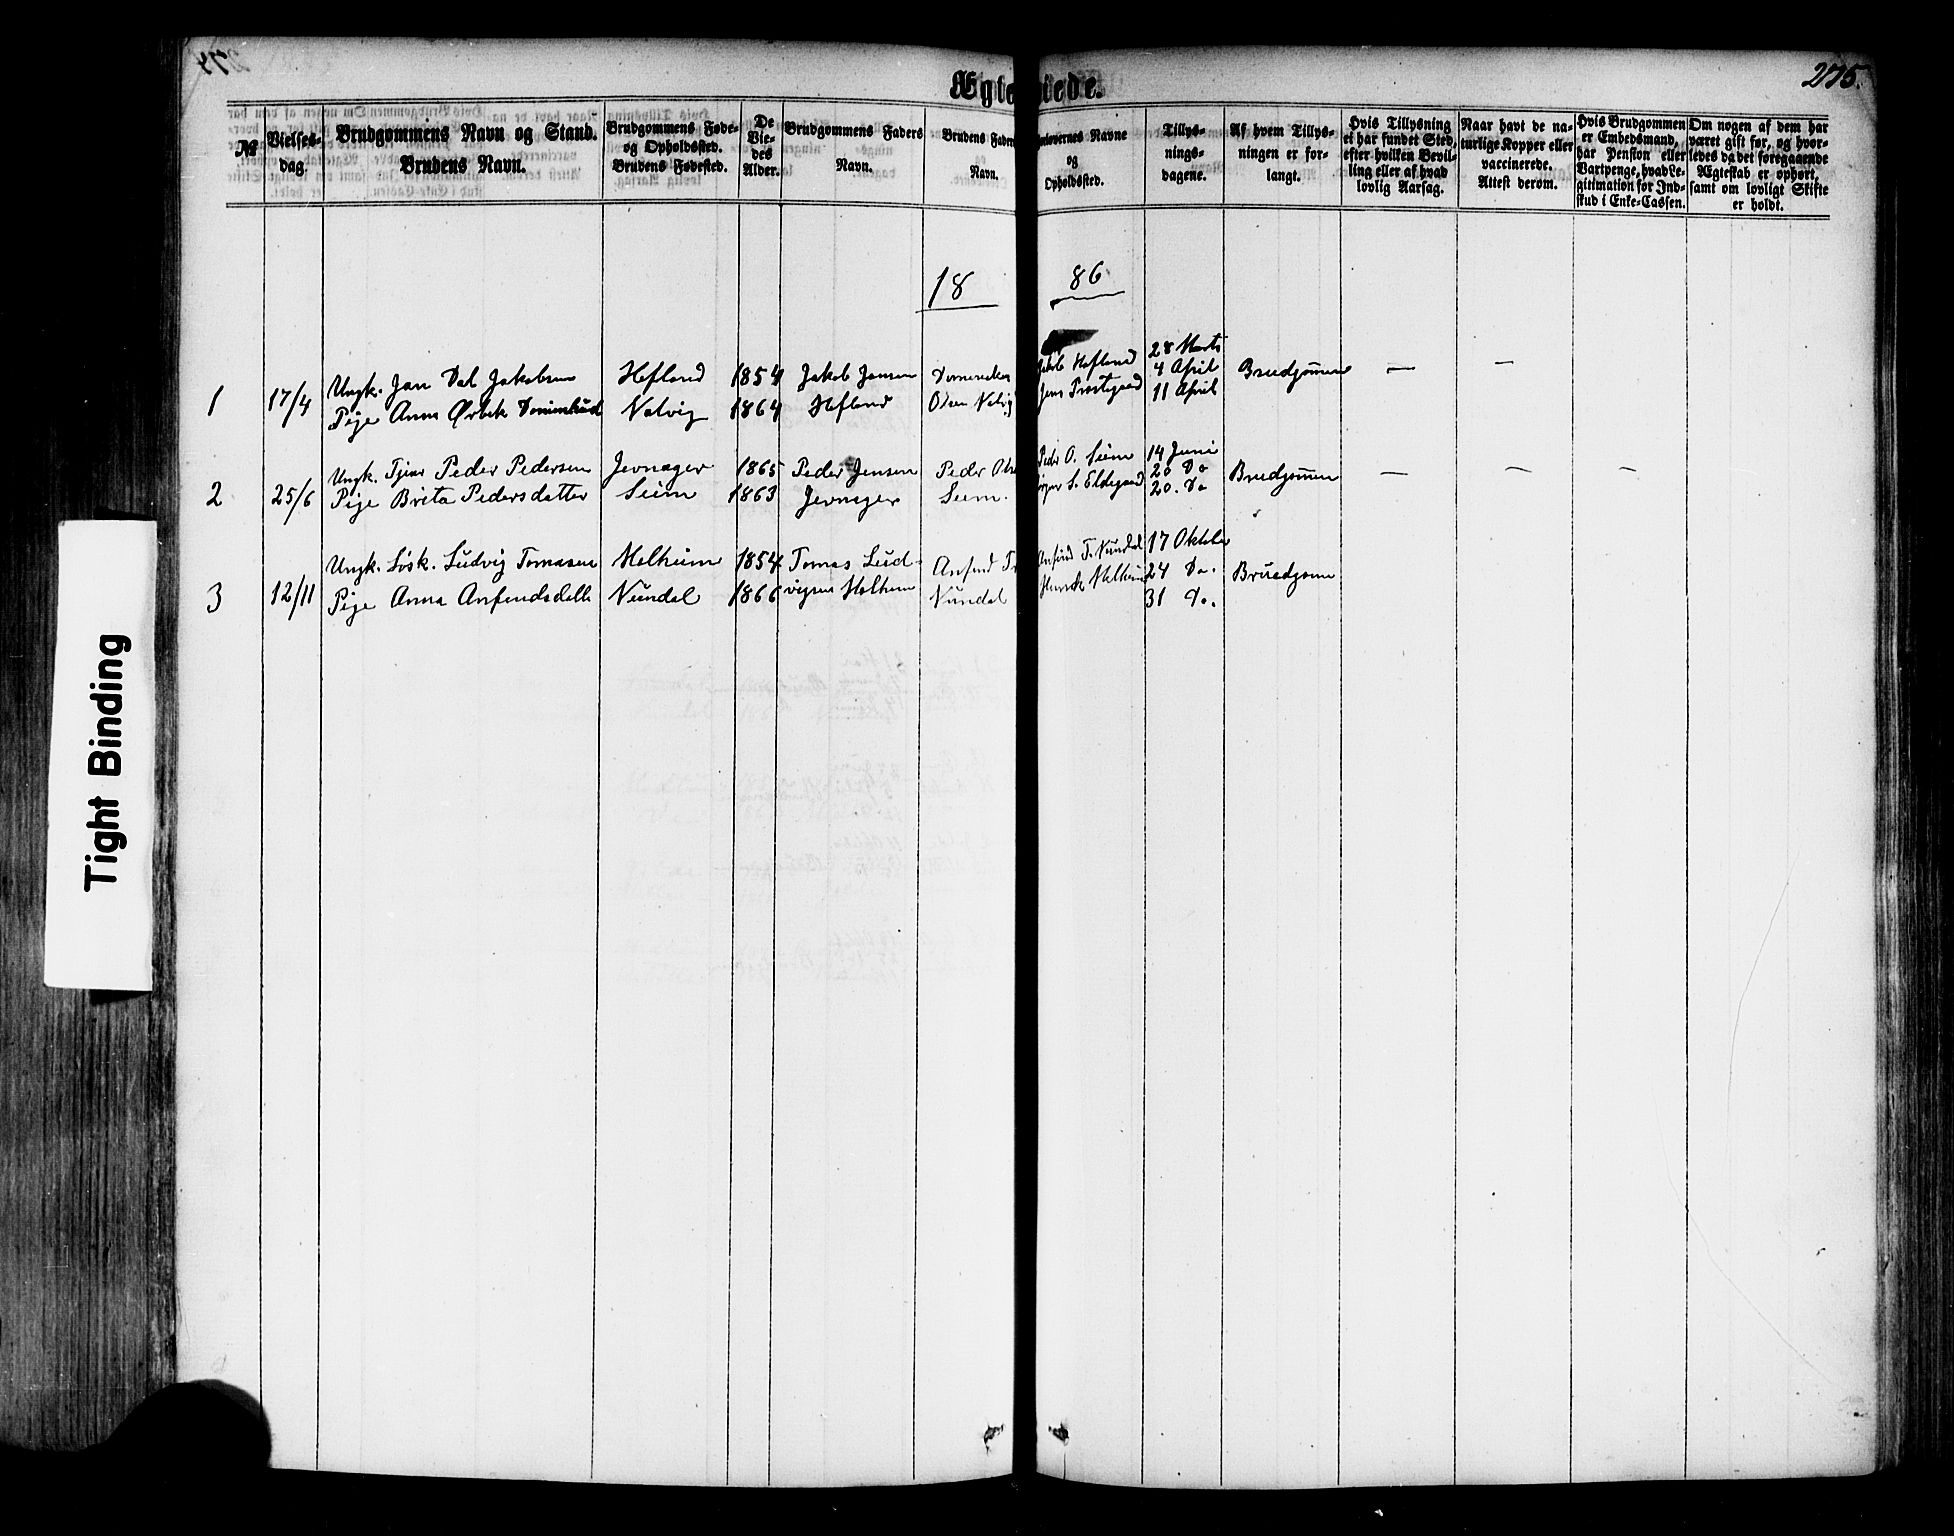 275.
Ægte
tede.
№
Vielses-
dag.
Brudgommens Navn og Stand.
Brudens Navn.
Brudgommens Føde-
og Opholdssted.
Brudens Fødested.
De
Vie-
des
Alder.
Brudgommens Faders
Navn.
Brudens Faders
Navn.
Forlovernes Navne
og
Opholdssted.
Tillys-
nings-
dagene.
Af hvem Tillys-
ningen er for-
langt.
Hvis Tillysning
ei har fundet Sted,
efter hvilken Bevil-
ling eller af hvad
lovlig Aarsag.
Naar havt de na-
turlige Kopper eller
vaccinerede.
Attest derom.
Hvis Brudgommen
er Embedsmand,
har Pension eller
Vartpenge, hvad Le-
gitimation for Ind-
skud i Enke-Cassen.
Om nogen af dem har
været gift før, og hvor-
ledes da det foregaaende
Ægteskab er ophørt,
samt om lovligt Skifte
er holdt.
18 86
1 17/4
Ungk. Jan Dal Jakobsen
Pige Anna
Hefland
Natvig
1854
1864
Jakob Jansen
Hefland
Olsen Natvig
Jakob Hefland
Jens Prestegaard
28 Marts
4 April
11 April
Brudgommen
— —
2 25/6
Ungk. Tjener Peder Pedersen
Pige Brita Pedersdatter
Jevnager
Seim
1865
1863
Peder Jensen
Jevnager
Peder Ols
Seim.
Peder O. Seim
S. Eldegaard
14 Juni
20 Do
20. Do
Brudgommen
— — —
3 12/11
Ungk. Losk. Ludvig Tomasen
Pige Anna Anfendsdatte
Holheim
Nundal
1854
1866
Tomas Lud-
vigsen Holheim
Anfind T
Nundal
Anfind T. Nundal
Henrik Holheim
17 Oktober
24 Do.
31 Do.
Brudgom
Tight Binding